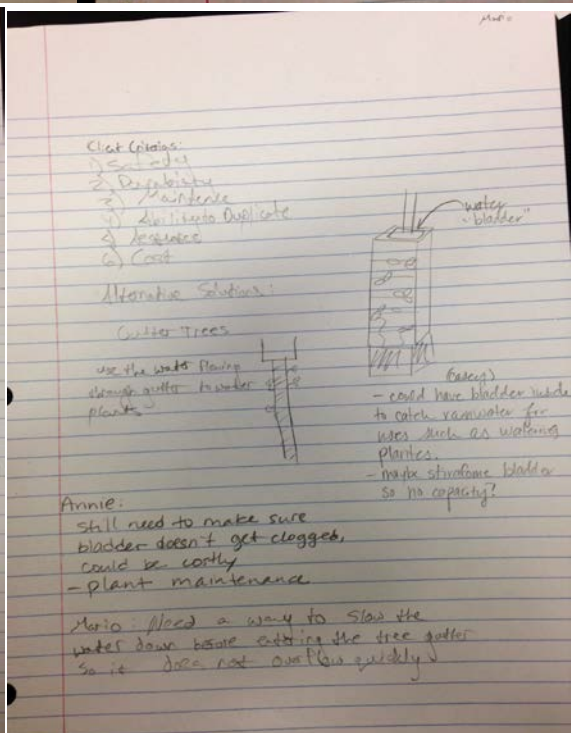 Mario
Client Criterias:
1) Safety
2) Durability
3) Maintence
4) Ability to Duplicate
6) Cost
Alternative Solutions:
Gutter Trees
use the water flowing
through gutter to water
plants
water
"bladder"
(Casey)
- could have bladder inside
to catch rainwater for
uses such as watering
plantes.
- maybe stirofome bladder
so no capacity?
Annie:
still need to make sure
bladder doesn't get clogged,
could be costly
- plant maintenance
Mario: Need a way to slow the
water down before entering the tree gutter
so it does not overflow quickly